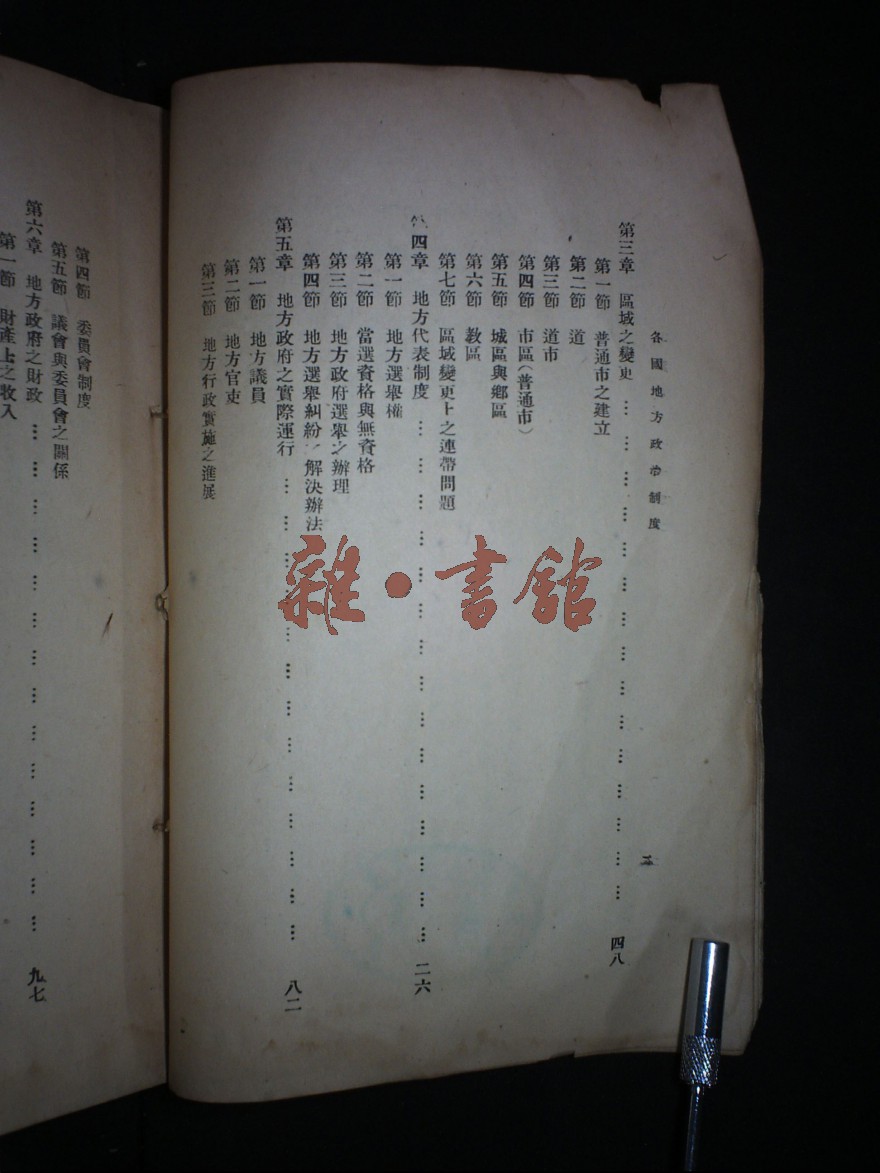 各國地方政治制度
第三章 區域之變更 … … … … … … … … … … … … … … … 四八
第一節 普通市之建立
第二節 道
第三節 道市
第四節 市區（普通市）
第五節 城區與鄉區
第六節 教區
第七節 區域變更上之連帶問題
四章 地方代表制度 … … … … … … … … … … … … … … … 二六
第一節 地方選舉權
第二節 當選資格與無資格
第三節 地方政府選舉之辦理
第四節 地方選舉糾紛 解決辦法
第五章 地方政府之實際運行 … … … … … … … … … … … … … 八二
第一節 地方議員
第二節 地方官吏
第三節 地方行政實施之進展
第四節 委員會制度
第五節 議會與委員會之關係
第六章 地方政府之財政 … … … … … … … … … … … … … … 九七
第一節 財產上之收入
雜·書館